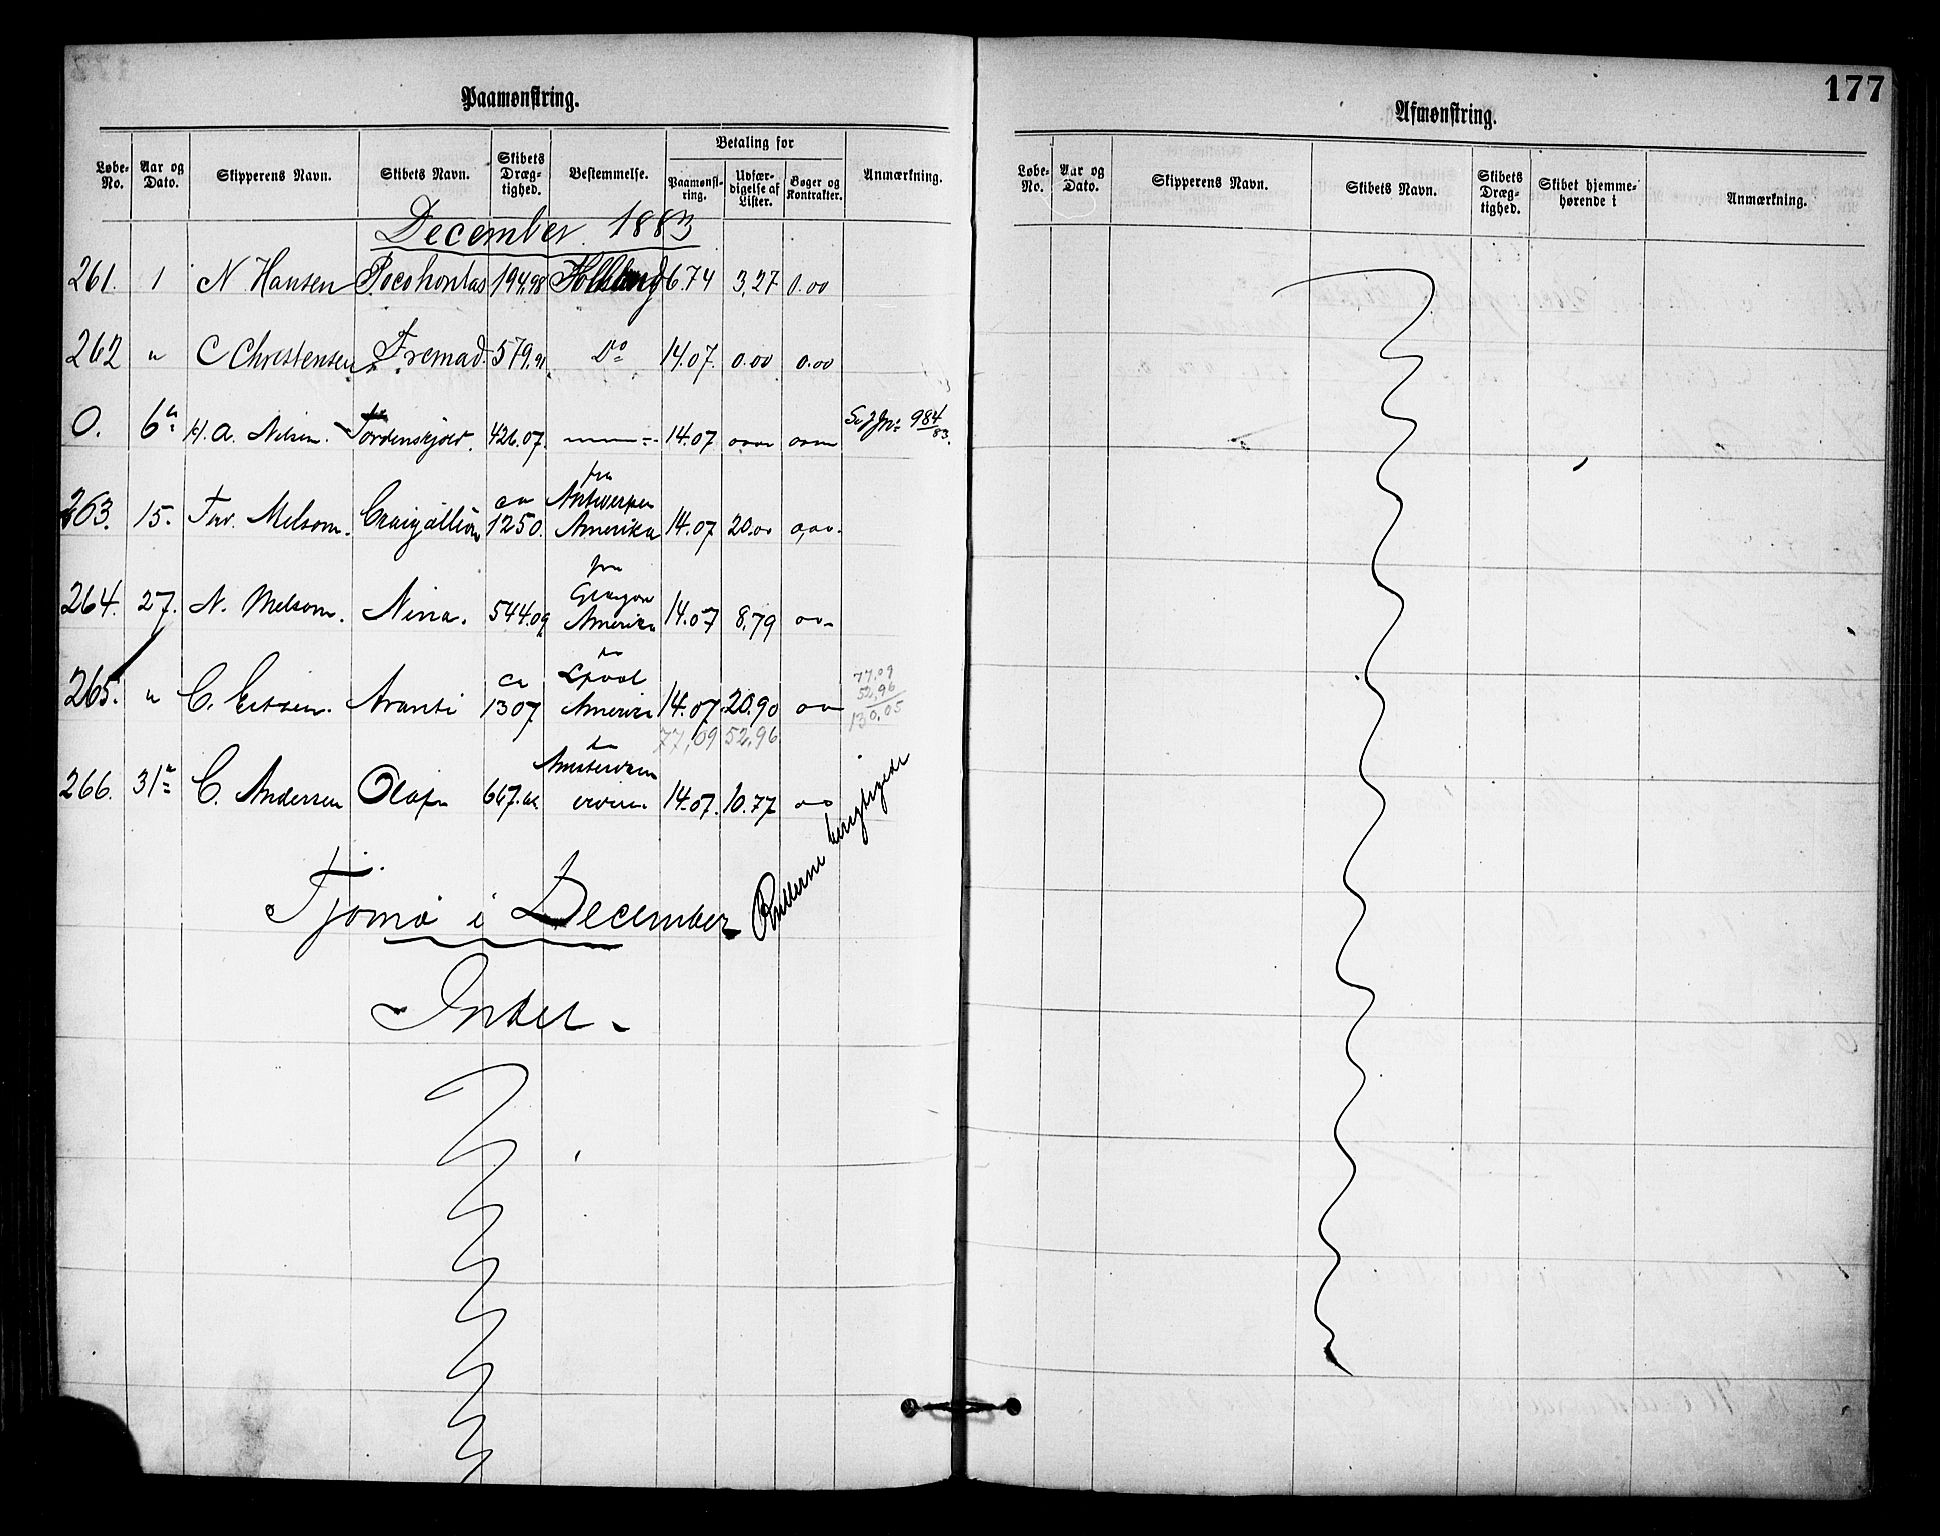 177
Paamønstring.
Løbe-No. Aar og Dato. Skipperens Navn. Skibets Navn. Skibets Dræg-tighed. Bestemmelse. Betaling for Paamønst-ring. Udfær-digelse af Lister. Bøger og Kontrakter. Anmærkning.
December 1883
261. 1 N Hansen Pocohontas 194,98 Holland 6.74 3,27 0.00
262 " C Christensen Fremad. 579, Do 14.07. 0.00 0.00
0. 6 H. A. Nilsen. Tordenskjold. 426.07. 14.07 984/83.
263. 15. Melsom. 1250. fra Antwerpen Amerika 14.07 20.00
264. 27. N. Melsom. Nina. 544.09 fra Amerika 14.07 8,79
265. " C. Avanti ca 1307 Amerika 14.07. 20.90
77.09
52,96
130,05
77,09 52,96
266. 31 C. Andersen Olafr 667. 14.07. 10.77
Tjømø i December
Rullerne berigtigede
Intet.
Afmønstring.
Løbe-No. Aar og Dato. Skipperens Navn. Skibets Navn. Skibets Dræg-tighed. Skibet hjemme-hørende i Anmærkning.